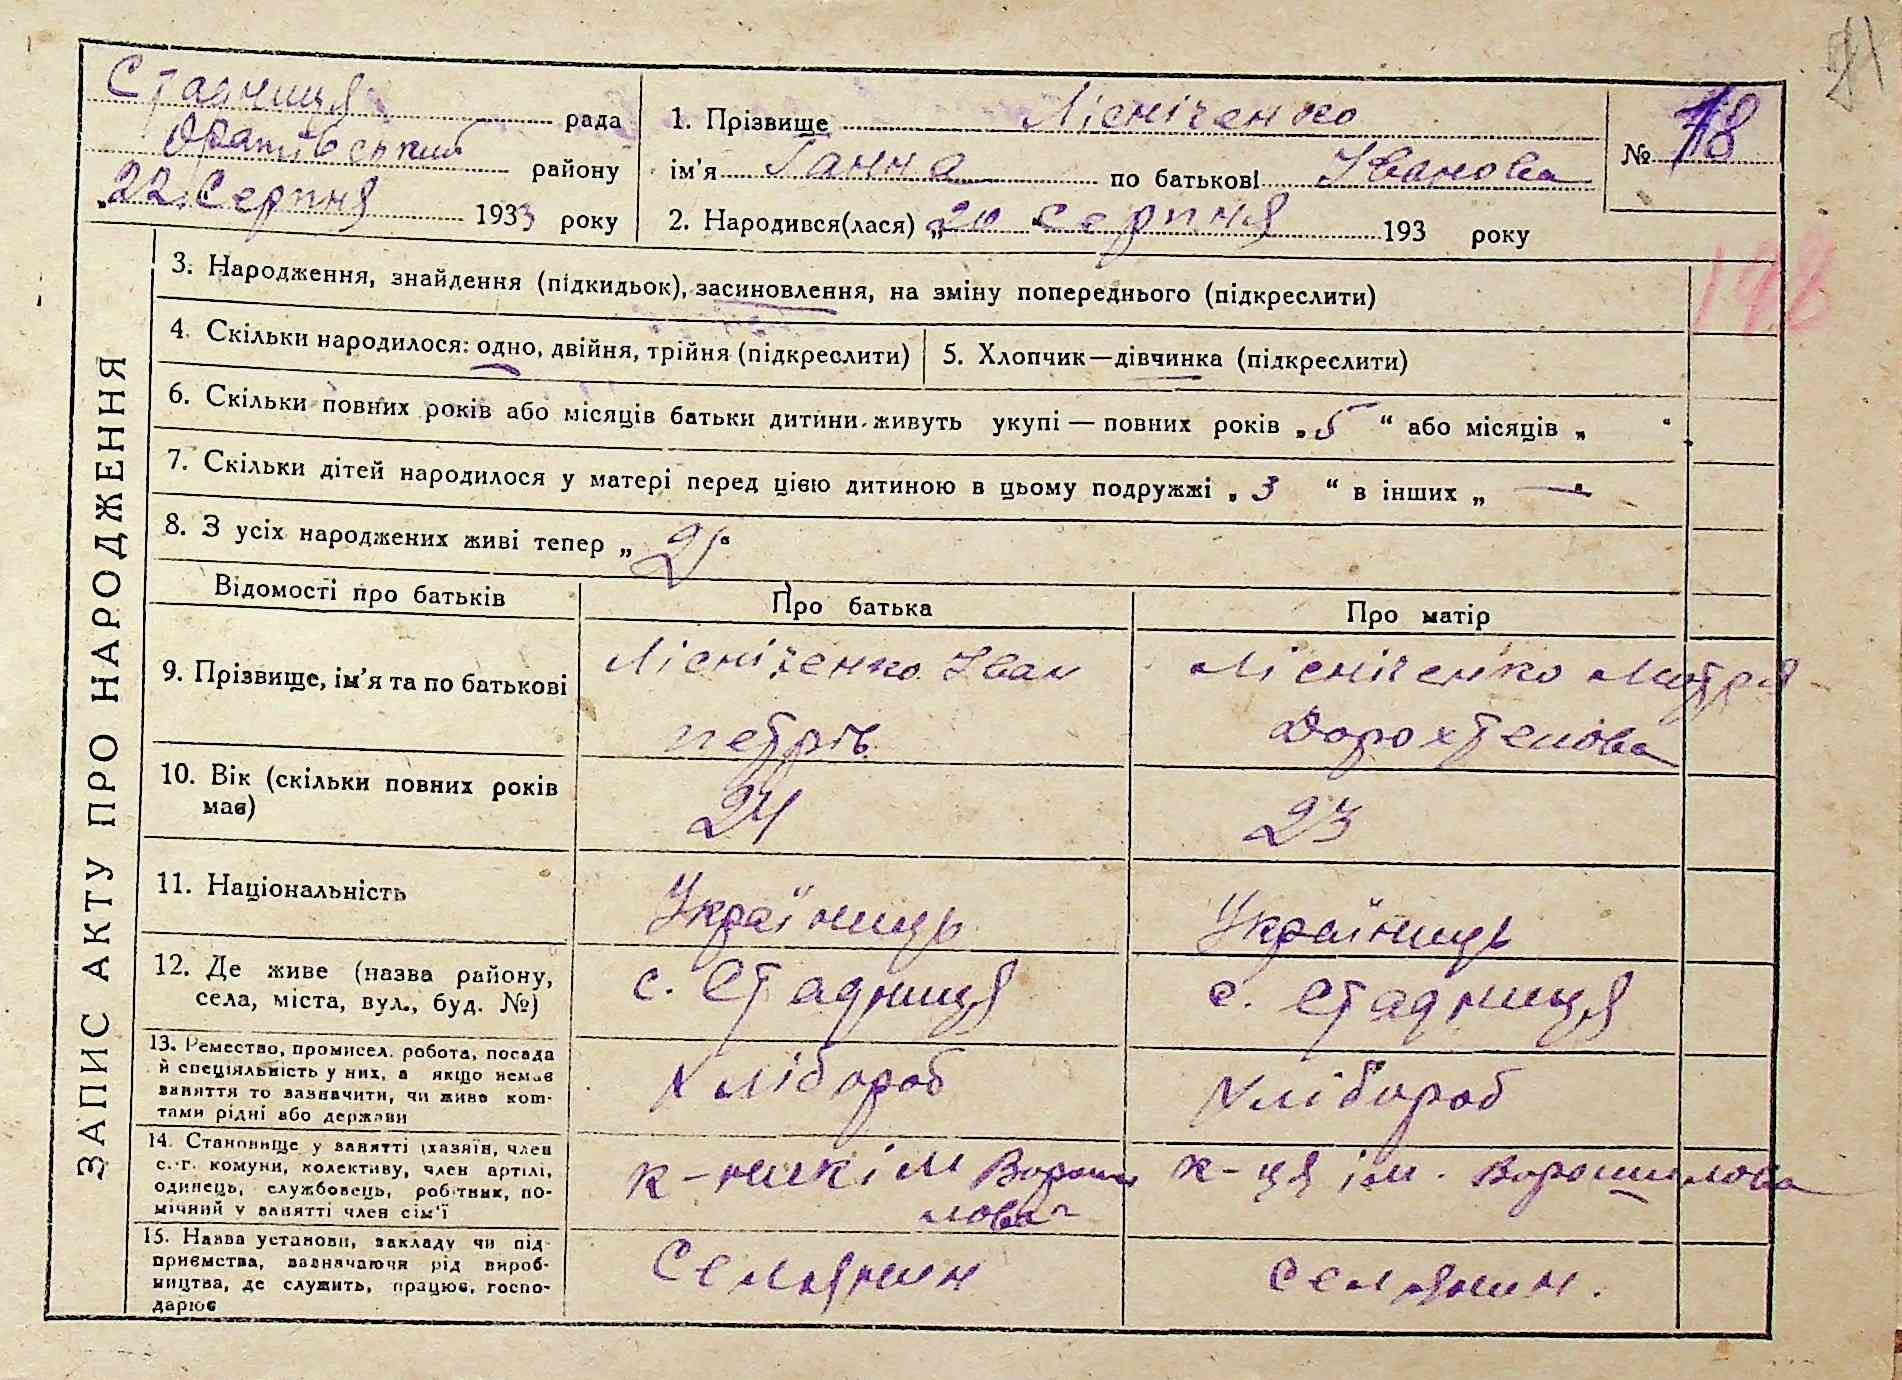 Стадниця рада
Оратівський району
22 Серпня 1933 року
1. Прізвище Лісніченко
ім'я Ганна по батькові Іванова
№ 18
2. Народився(лася) „20 Серпня 193 року
198
ЗАПИС АКТУ ПРО НАРОДЖЕННЯ
3. Народження, знайдення (підкидьок), засиновлення, на зміну попереднього (підкреслити)
4. Скільки народилося: одно, двійня, трійня (підкреслити)
5. Хлопчик—дівчинка (підкреслити)
6. Скільки повних років або місяців батьки дитини живуть укупі — повних років „5“ або місяців „ “
7. Скільки дітей народилося у матері перед цією дитиною в цьому подружжі „3“ в інших „—“
8. З усіх народжених живі тепер „2“
Відомості про батьків
Про батька
Про матір
9. Прізвище, ім'я та по батькові
Лісніченко Іван
петрів
Лісніченко Мотря
Дорохтеиова
10. Вік (скільки повних років
має)
24
23
11. Національність
Україниць
Україниць
12. Де живе (назва району,
села, міста, вул., буд. №)
с. Стадниця
с. Стадниця
13. Ремество, промисел, робота, посада
й спеціяльність у них, а якщо немає
заняття то зазначити, чи живе кош-
тами рідні або держави
Хлібороб
Хлібороб
14. Становище у занятті (хазяїн, член
с.-г. комуни, колективу, член артілі,
одинець, службовець, робітник, по-
мічний у занятті член сім'ї
к-ник ім Вороши
лова
к-ця ім. Ворошилова
15. Назва установи, закладу чи під-
приємства, зазначаючи рід вироб-
ництва, де служить, працює, госпо-
дарює
Селянин
Селянин.